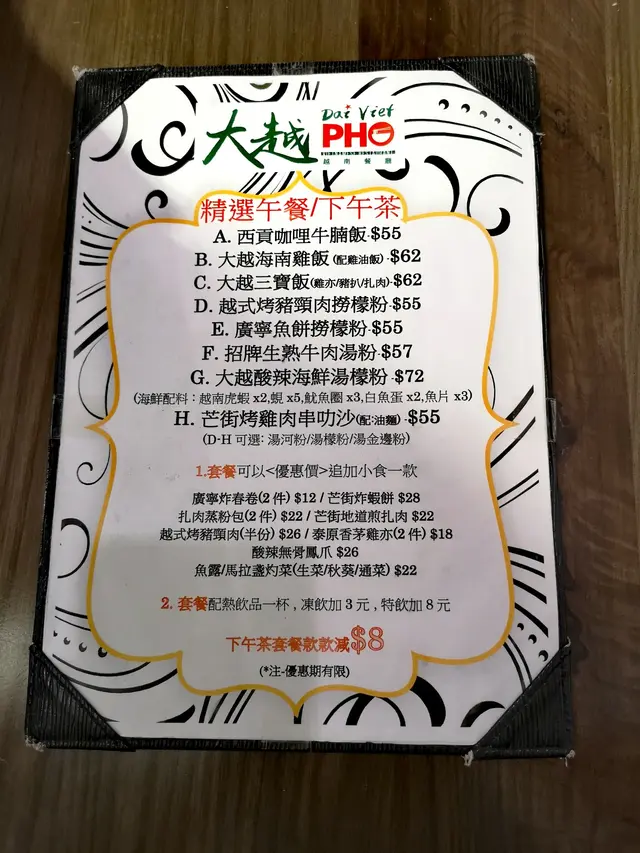 大越 Dai Viet
PHO
VIETNAMESE RESTAURANT
越南餐廳
精選午餐/下午茶
A. 西貢咖哩牛腩飯-$55
B. 大越海南雞飯(配雞油飯)-$62
C. 大越三寶飯(雞亦/豬扒/扎肉)-$62
D. 越式烤豬頸肉撈檬粉-$55
E. 廣寧魚餅撈檬粉-$55
F. 招牌生熟牛肉湯粉-$57
G. 大越酸辣海鮮湯檬粉-$72
(海鮮配料：越南虎蝦 x2,蜆 x5,魷魚圈 x3,白魚蛋 x2,魚片 x3)
H. 芒街烤雞肉串叻沙(配:油麵)-$55
(D-H 可選: 湯河粉/湯檬粉/湯金邊粉)
1.套餐可以<優惠價>追加小食一款
廣寧炸春卷(2 件) $12 / 芒街炸蝦餅 $28
扎肉蒸粉包(2 件) $22 / 芒街地道煎扎肉 $22
越式烤豬頸肉(半份) $26 / 泰原香茅雞亦(2 件) $18
酸辣無骨鳳爪 $26
魚露/馬拉盞灼菜(生菜/秋葵/通菜) $22
2. 套餐配熱飲品一杯 , 凍飲加 3 元 , 特飲加 8 元
下午茶套餐款款減$8
(*注-優惠期有限)